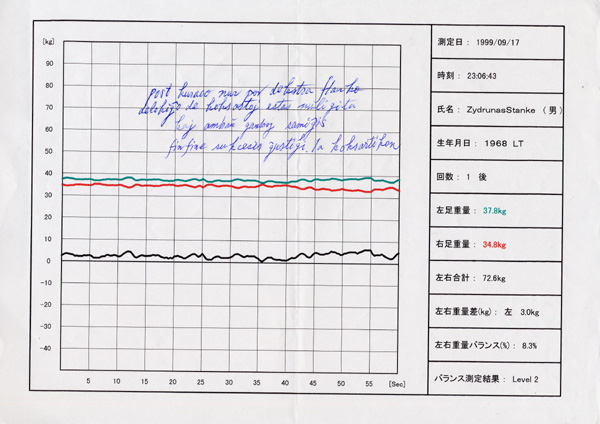 [kg]
90
80
70
60
50
40
30
20
10
0
-10
-20
-30
-40
5 10 15 20 25 30 35 40 45 50 55 [Sec]
post nur por dekstra flanko
de koksostoj estas
kaj ambaŭ gamboj samiĝis
finfine sukcesis ĝustigi la koksartikon
測定日 : 1999/09/17
時刻 : 23:06:43
氏名 : ZydrunasStanke (男)
生年月日 : 1968 LT
回数 : 1 後
左足重量 : 37.8kg
右足重量 : 34.8kg
左右合計 : 72.6kg
左右重量差(kg) : 左 3.0kg
左右重量バランス(%) : 8.3%
バランス測定結果 : Level 2